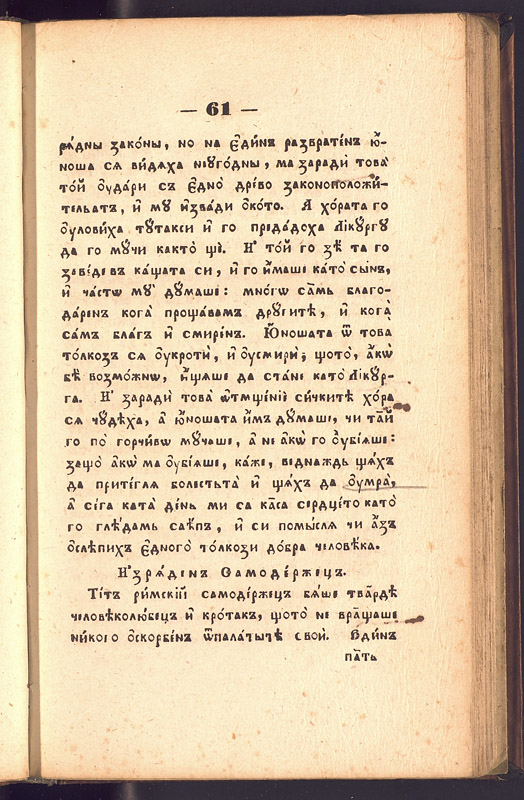 — 61 —
рѧ́дны зако́ны, но на Єди́нъ развратє́нъ ю҆́-
ноша сѧ ви́дѧха нєуго́дны, ма зарадѝ това̀
то́й ᲂу҆да́ри съ Єдно̀ дрѐво законоположи́-
тєльатъ, и҆ му и҆зва́ди ѻ҆ко́то. А҆ хо́рата го
ᲂу҆лови́ха ту́такси и҆ го прєда́доха Лїку́ргу
да го му́чи както̀ щѐ. И҆ то́й го зѐ та го
завє́дє въ ка́щата си, и҆ го и҆́машє ка́то сы́нъ,
и҆ ча́стѡ му̀ ду́машє: мно́гѡ са́мь благо-
да́рєнъ кога̀ проща́вамъ дру́гитѣ, и҆ кога̀
са́мъ бла́гъ и҆ смирє́нъ. Ю҆́ношата ѿ това̀
то́лкозъ сѧ ᲂу҆кротѝ, и҆ ᲂу҆смирѝ; що́то, а҆́кѡ
бѣ̀ возмо́жнѡ, и҆́щѧшє да ста́нє като̀ Лїку́р-
га. И҆ зарадѝ това̀ ѿмщє́нїє си́чкитѣ хо́ра
сѧ чу́дѣха, а҆ ю҆́ношата и҆́мъ ду́машє, чи та́й
го по̀ горчи́вѡ му́чашє, а҆ нє а҆́кѡ го ᲂу҆бїѧ́шє:
защо̀ а҆́кѡ ма ᲂу҆бїѧ́шє, ка́жє, вєдна́ждь щѧ́хъ
да притє́глѧ болєстьта̀ и҆ щѧ́хъ да ᲂу҆мра̀,
а҆ сєга̀ ката̀ дє́нь ми са ка́са сєрдцє́то като̀
го глѣ́дамь слѣ́пъ, и҆ си помы́слѧ чи а҆́зъ
ѻ҆слѣпи́хъ Єдного̀ то́лкози добра̀ чєловѣ́ка.
И҆зрѧ́дєнъ Самодє́ржєцъ.
Ті́тъ ри́мскїй самодє́ржєцъ бѧ́шє тва́рдѣ
чєловѣколю́бєцъ и҆ кро́такъ, що́то нє вра́щашє
ни́кого ѻ҆скорбє́нъ ѿ пала́тытѣ свои̑. Єди́нъ
па́ть